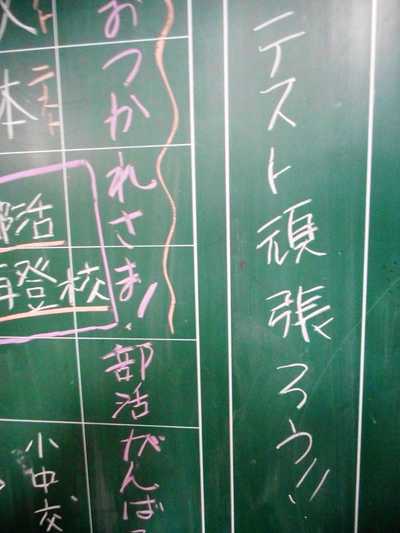 テスト頑張ろう!!
おつかれさま!
部活がんばろ
テスト
体
部活
再登校
小中交